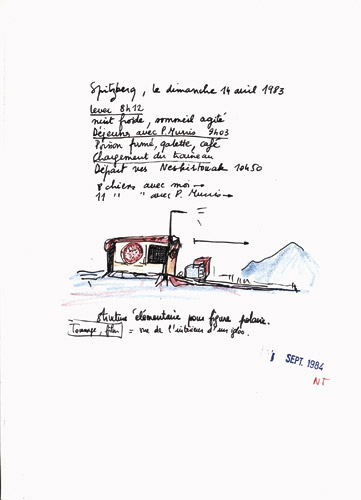 Spitzberg, le dimanche 14 avril 1983
Lever 8h12
nuit froide, sommeil agité
Déjeuner avec P. Murris 9h03
Poisson fumé, galette, café
Chargement du traîneau
Départ vers 10h50
8 chiens avec moi →
11 " " avec P. Murris →
Structure élémentaire pour figure polaire.
Tournage, film = vue de l'intérieur d'un
SEPT. 1984
NT